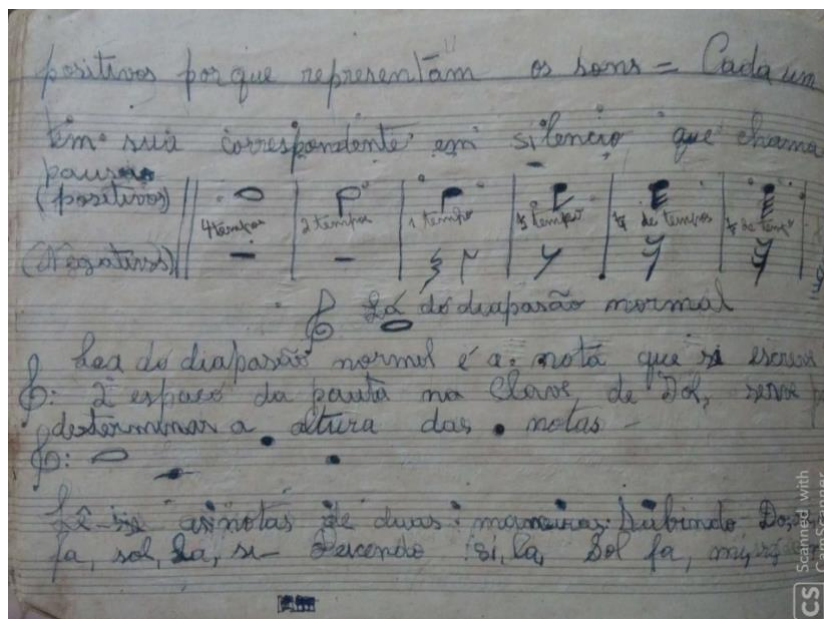 positivos porque representam os sons = Cada um
tem sua correspondente em silencio que chama
pausa
(positivos)
4 tempos 2 tempos 1 tempo ½ tempo ¼ de tempos de tempo
(Negativos)
Lá do diapasão normal
Lea do diapasão normol é a nota que si escreve
2º espaço da pauta na Clave de Sol, serve
determinar a altura das notas -
Lê-se as notas de duas maneiras: Subindo Do,
fa, sol, la, si - Descendo si, la, Sol fa, mi, ré
CS Scanned with
CamScanner